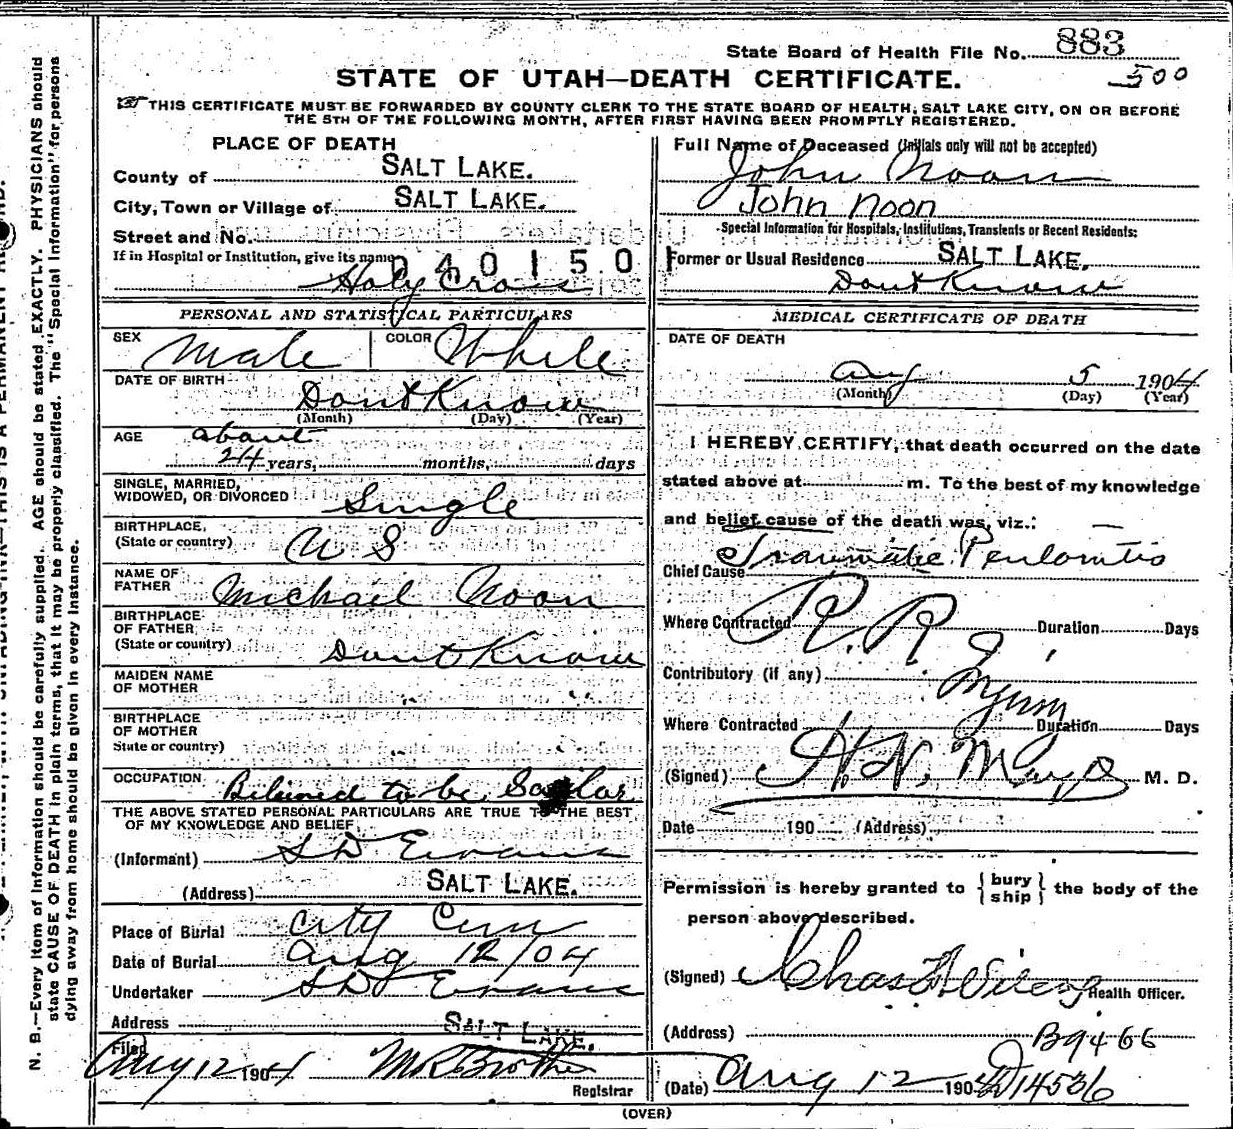 State Board of Health File No. 883
500
STATE OF UTAH—DEATH CERTIFICATE.
THIS CERTIFICATE MUST BE FORWARDED BY COUNTY CLERK TO THE STATE BOARD OF HEALTH, SALT LAKE CITY, ON OR BEFORE
THE 5TH OF THE FOLLOWING MONTH, AFTER FIRST HAVING BEEN PROMPTLY REGISTERED.
PLACE OF DEATH
County of SALT LAKE.
City, Town or Village of SALT LAKE.
Street and No.
If in Hospital or Institution, give its name 040150
Holy Cross
PERSONAL AND STATISTICAL PARTICULARS
SEX Male COLOR White
DATE OF BIRTH Dont Know
(Month) (Day) (Year)
AGE about
24 years, months, days
SINGLE, MARRIED,
WIDOWED, OR DIVORCED Single
BIRTHPLACE,
(State or country) U S
NAME OF
FATHER Michael Noon
BIRTHPLACE
OF FATHER
(State or country) Dont Know
MAIDEN NAME
OF MOTHER
BIRTHPLACE
OF MOTHER
State or country)
OCCUPATION Belived to be Sailor
THE ABOVE STATED PERSONAL PARTICULARS ARE TRUE TO THE BEST
OF MY KNOWLEDGE AND BELIEF
(Informant) S D Evans
(Address) SALT LAKE.
Place of Burial City Cem
Date of Burial Aug 12/04
Undertaker S D Evans
Address SALT LAKE.
Filed Aug 12 1904
Registrar
Full Name of Deceased (Initials only will not be accepted)
John Noon
John Noon
Special Information for Hospitals, Institutions, Transients or Recent Residents:
Former or Usual Residence SALT LAKE.
Dont Know
MEDICAL CERTIFICATE OF DEATH
DATE OF DEATH
Aug 5 1904
(Month) (Day) (Year)
I HEREBY CERTIFY, that death occurred on the date
stated above at m. To the best of my knowledge
and belief cause of the death was, viz.:
Chief Cause Traumatic
Where Contracted R. R Duration Days
Contributory (if any) Injury
Where Contracted Duration Days
(Signed) M. D.
Date 190 (Address)
Permission is hereby granted to { bury
ship } the body of the
person above described.
(Signed) Chas Health Officer.
(Address) B9466
(Date) Aug 12 190 D14536
(OVER)
N. B.—Every item of Information should be carefully supplied. AGE should be stated EXACTLY. PHYSICIANS should
state CAUSE OF DEATH in plain terms, that it may be properly classified. The "Special Information" for persons
dying away from home should be given in every instance.